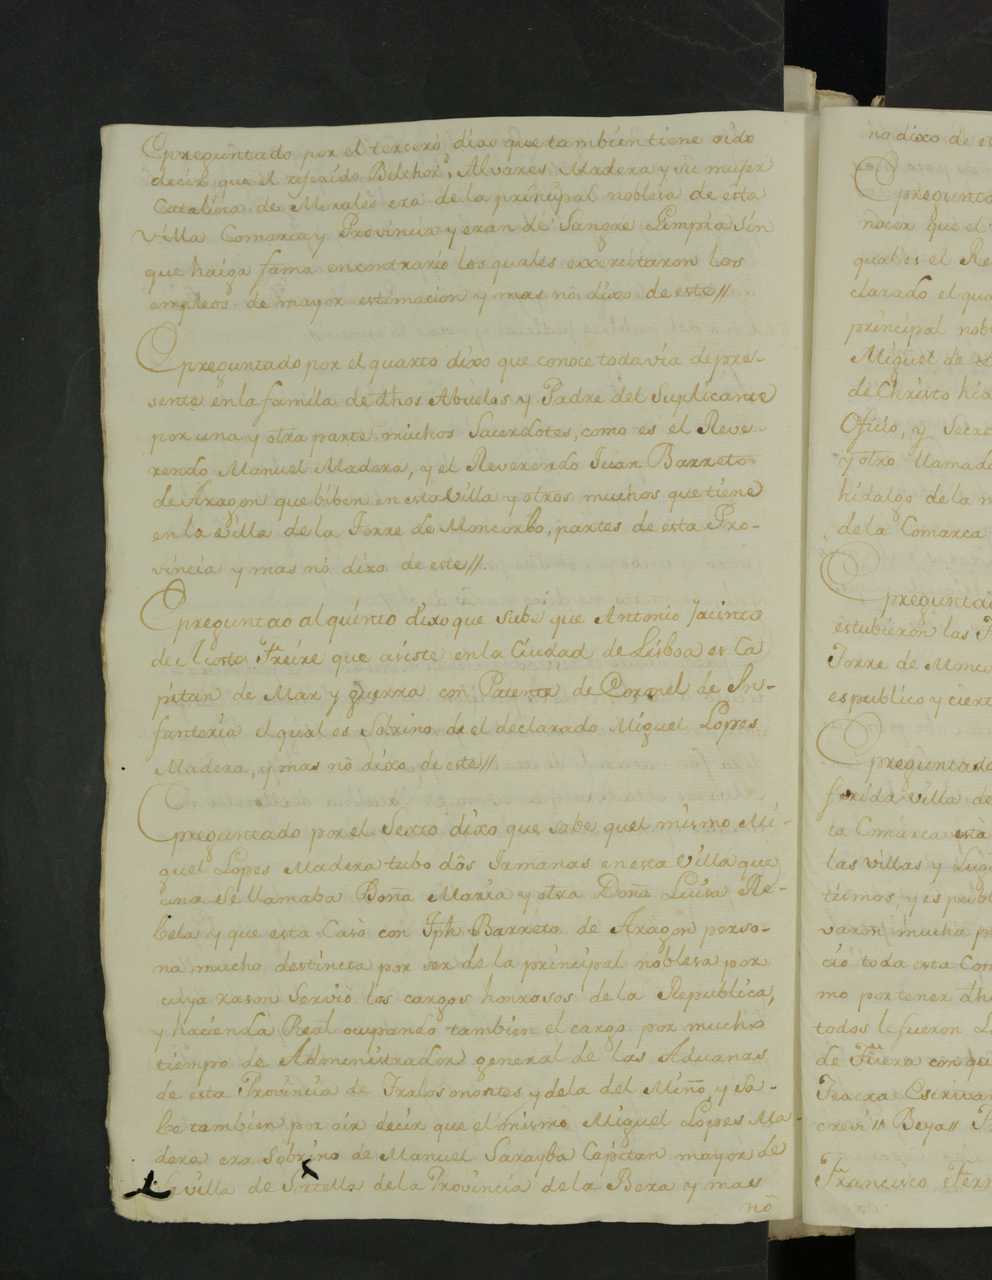 E preguntado por el tercero dixo que tambien tiene oido
decir que el referido Belchor Alvares Madera y su mujer
Catalina de Morales era de la principal noblesa de esta
Villa Comarca y Provincia y eran de Sangre Limpia sin
que haiga fama encontrario los quales exxercitaron los
empleos de mayor estimacion y mas nõ dixo de este//
E preguntado por el quarto dixo que conoce todavia de pre-
sente en la famila de dhos Abuelos y Padre del Suplicante
por una y otra parte muchos Sacerdotes, como es el Reve-
rendo Manuel Madera, y el Reverendo Juan Barreto
de Aragon que biben en esta Villa y otros muchos que tiene
en la Villa de la Torre de Moncorbo, partes de esta Pro-
vincia y mas nõ dixo de este//
E preguntao al quinto dixo que sabe que Antonio Jacinto
de Acosta Freire que asiste en la Ciudad de Lisboa es Ca
pitan de Mar y guerra con Patente de Coronel de In-
fanteria el qual es Sobrino de el declarado Miguel Lopes
Madera, y mas nõ dixo de este//
E preguntado por el Sexto dixo que sabe quel mismo Mi-
guel Lopes Madera tubo dôs Jamanas en esta Villa que
una Se llamaba Doña Maria y otra Doña Luisa Re-
bela y que esta Casò con Jph Barreto de Aragon perso-
na mucho destincta por ser de la principal noblesa por
cuya rason Serviò los cargos honrosos de la Republica,
y hacienda Real ocupando tambien el cargo por mucho
tiempo de Administrador general de las Aduanas
de esta Provincia de Tralosmontes y dela del Miño, y Sa-
be tambien por oir decir que el mismo Miguel Lopes Ma-
dera era Sobrino de Manuel Sarayba Capitan mayor de
la villa de Sortella de la Provincia de la Bera y mas
nõ
no dixo de es
E pregunta
nocer que el
qual es el Re
clarado el qua
principal nob
Miguel de
de Christo hid
Oficio, y Secre
y otro llamado
hidalgo de la
de la Comarca
E preguntad
estubieron las
Torre de Monc
es publico y ciert
E preguntado
ferida villa de
ta Comarca esta
las villas y Lug
timos, y es publ
varon mucha p
ciò toda esta Com
mo por tener dh
todos le fueron
de Fuera con que
Escrivan
crevi// Beya//
Francisco